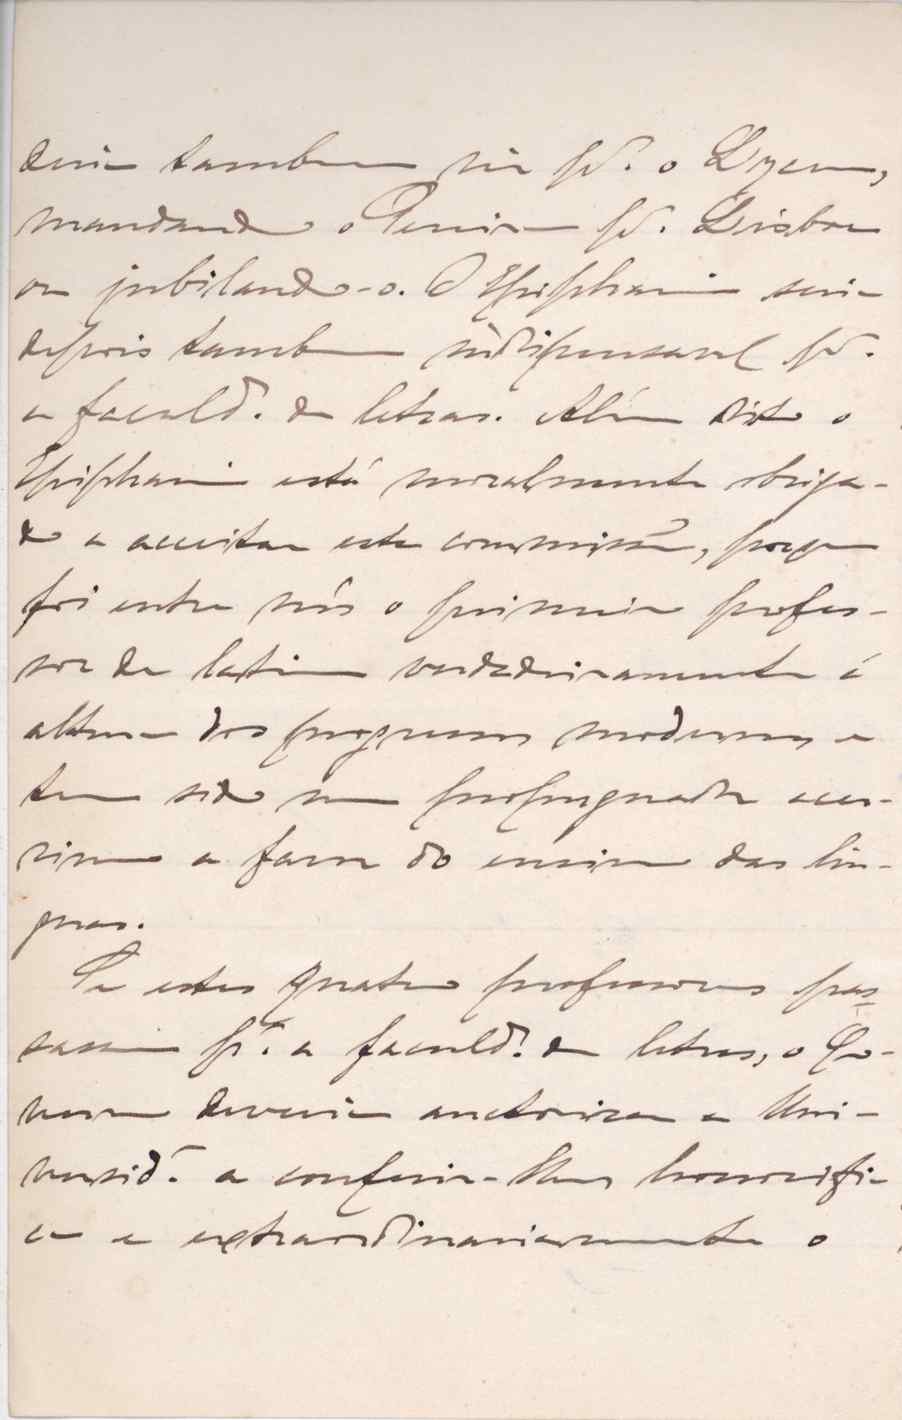 deria tambem vir pª. o Lyceu,
mandando o Pereira pª. Lisboa
ou jubilando-o. O Epiphanio seria
depois tambem indispensavel pª.
a faculdᵉ. de letras. Além disto o
Epiphanio está moralmente obriga-
do a acceitar esta commissão, porque
foi entre nós o primeiro profes-
sor de latim verdadeiramente á
altura dos progressos modernos e
tem sido um propugnador acer-
rimo a favor do ensino das lin-
guas.
Se estes quatro professores pas-
sassem pª. a faculdᵉ. de letras, o Go-
verno deveria auctorizar a Uni-
versidᵉ. a conferir-lhes honorifi-
ca e extraordinariamente o